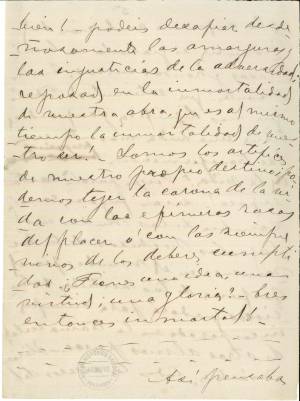 bién! - podéis desafiar desde
ñosamente las amarguras y
las injusticias de la adversidad,
reposad en la inmortalidad
de vuestra obra, que es al mismo
tiempo la inmortalidad de vues-
tro ser! - Somos los artífices
de nuestro propio destino; po-
demos tejer la corona de la vi-
da con las efímeras rosas
del placer ó con las siempre
vivas de los deberes cumpli-
dos. ¿Tienes una idea, una
virtud, una gloria? - Eres
entonces inmortal! -
Así pensaba